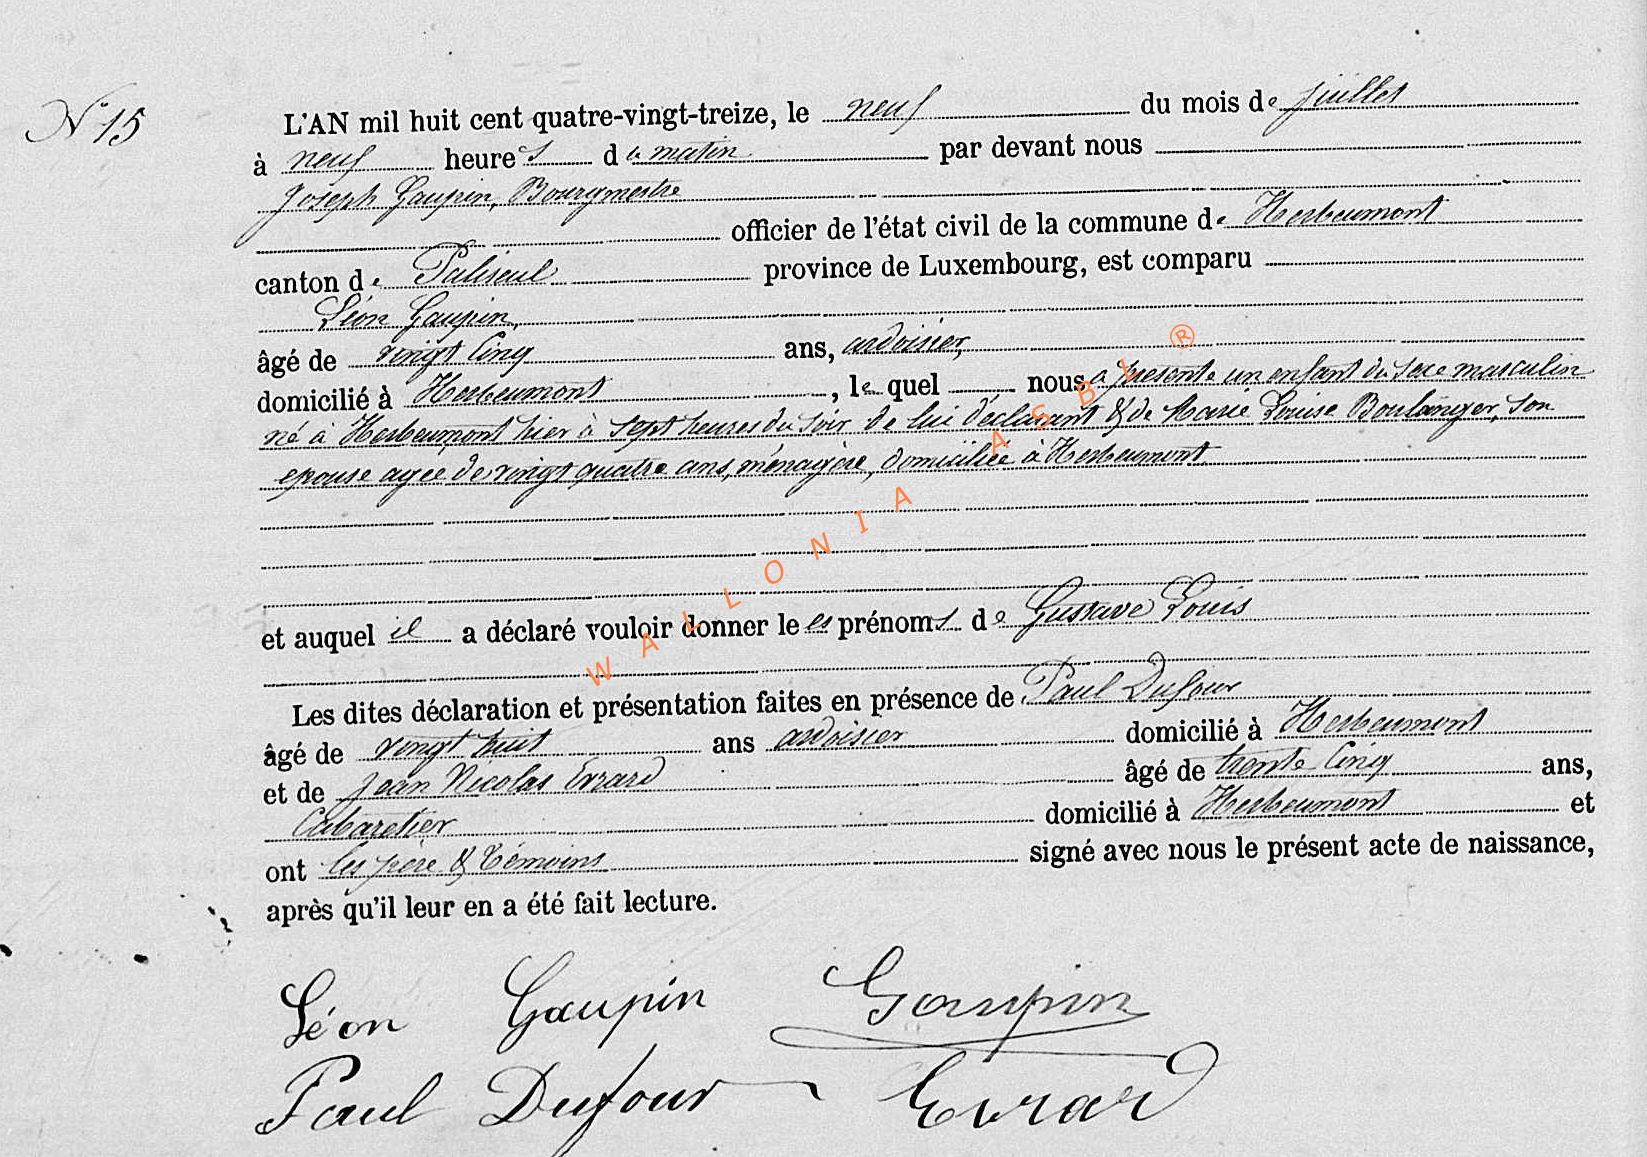 N° 15
L'AN mil huit cent quatre-vingt-treize, le neuf du mois de juillet
à neuf heures du matin par devant nous
Joseph Gaupin, Bourgmestre
officier de l'état civil de la commune de Herbeumont
canton de Paliseul province de Luxembourg, est comparu
Léon Gaupin,
âgé de vingt cinq ans, ardoisier,
domicilié à Herbeumont, lequel nous a présenté un enfant du sexe masculin
né à Herbeumont hier à sept heures du soir de lui déclarant & de Marie Louise Boulanger, son
épouse agée de vingt quatre ans, ménagère, domiciliée à Herbeumont
et auquel il a déclaré vouloir donner les prénoms de Gustave Louis
Les dites déclaration et présentation faites en présence de Paul Dufour
âgé de vingt huit ans ardoisier domicilié à Herbeumont
et de Jean Nicolas Evrard âgé de trente cinq ans,
Cabaretier domicilié à Herbeumont et
ont les père & témoins signé avec nous le présent acte de naissance,
après qu'il leur en a été fait lecture.
Léon Gaupin Gaupin
Paul Dufour Evrard
WALLONIA ASBL ®